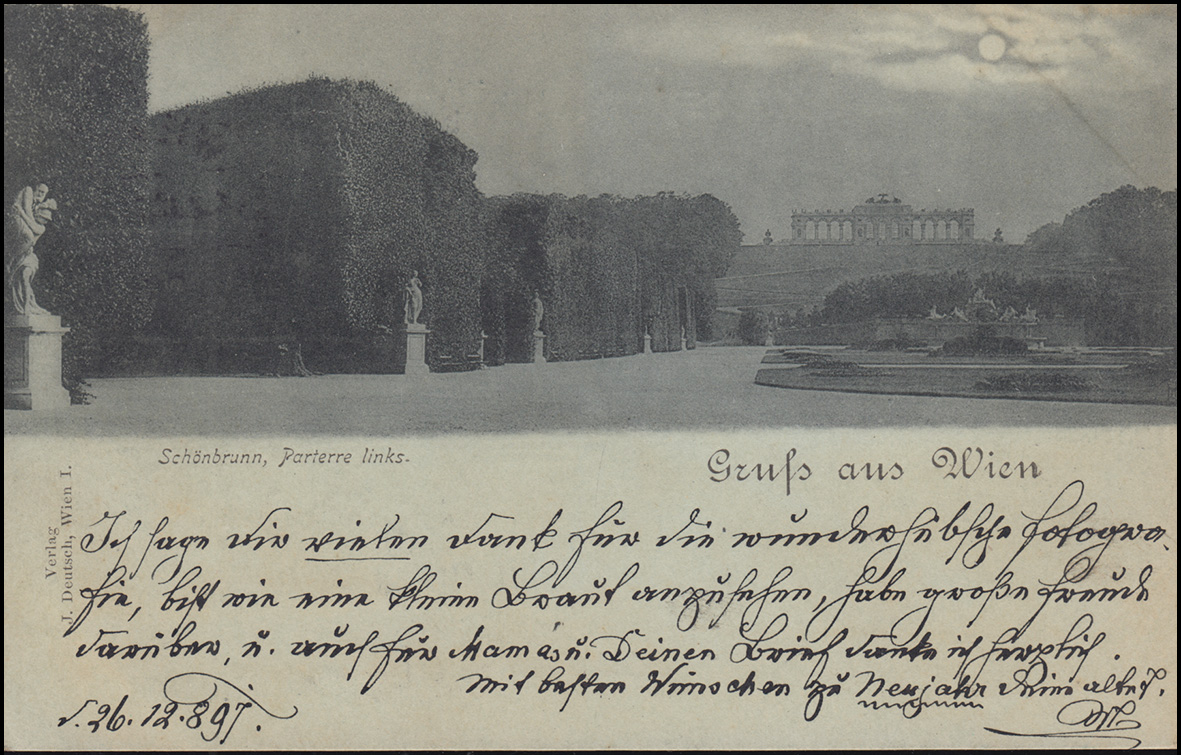 Schönbrunn, Parterre links.
Gruß aus Wien
Verlag
J. Deutsch, Wien I.
Ich sage Dir vielen Dank für die wunderhübsche Fotogra-
fie, bist wie eine kleine Braut anzusehen, habe große Freude
darüber, u. auch für Mamas u. Deinen Brief danke ich herzlich.
Mit besten Wünschen zu Neujahr Deine alte T.
d. 26. 12. 897.